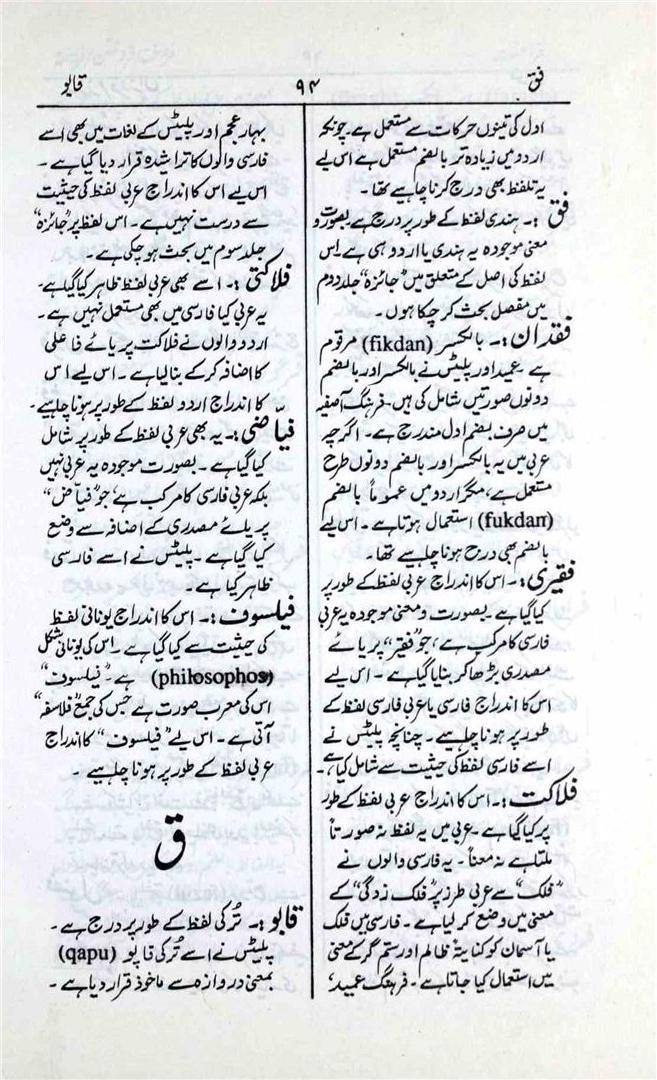 فق
۹۴
قابو
اول کی تینوں حرکات سے مستعمل ہے۔ چونکہ
اردو میں زیادہ تر بالضم مستعمل ہے اس لیے
یہ تلفظ بھی درج کرنا چاہیے تھا۔
فق :۔ ہندی لفظ کے طور پر درج ہے بصورت و
معنی موجودہ یہ ہندی یا اردو ہی ہے۔ اس
لفظ کی اصل کے متعلق میں "جائزہ" جلد دوم
میں مفصل بحث کر چکا ہوں۔
فقدان :۔ بالکسر (fikdan) مرقوم
ہے۔ عمید اور پلیٹس نے بالکسر اور بالضم
دونوں صورتیں شامل کی ہیں۔ فرہنگ آصفیہ
میں صرف بضم اول مندرج ہے۔ اگرچہ
عربی میں یہ بالکسر اور بالضم دونوں طرح
مستعمل ہے، مگر اردو میں عموماً بالضم
(fukdan) استعمال ہوتا ہے۔ اس لیے
بالضم بھی درج ہونا چاہیے تھا۔
فقیری :۔ اس کا اندراج عربی لفظ کے طور پر
کیا گیا ہے۔ بصورت و معنی موجودہ یہ عربی
فارسی کا مرکب ہے، جو "فقیر" پر یائے
مصدری بڑھا کر بنایا گیا ہے۔ اس لیے
اس کا اندراج فارسی یا عربی فارسی لفظ کے
طور پر ہونا چاہیے۔ چنانچہ پلیٹس نے
اسے فارسی لفظ کی حیثیت سے شامل کیا ہے۔
فلاکت :۔ اس کا اندراج عربی لفظ کے طور
پر کیا گیا ہے۔ عربی میں یہ لفظ نہ صورتاً
ملتا ہے نہ معناً۔ یہ فارسی والوں نے
"فلک" سے عربی طرز پر "فلک زدگی" کے
معنی میں وضع کر لیا ہے۔ فارسی میں فلک
یا آسمان کو کنایۃً ظالم اور ستم گر کے معنی
میں استعمال کیا جاتا ہے۔ فرہنگ عمید،
بہار عجم اور پلیٹس کے لغات میں بھی اسے
فارسی والوں کا تراشیدہ قرار دیا گیا ہے۔
اس لیے اس کا اندراج عربی لفظ کی حیثیت
سے درست نہیں ہے۔ اس لفظ پر "جائزہ"
جلد سوم میں بحث ہو چکی ہے۔
فلاکتی :۔ اسے بھی عربی لفظ ظاہر کیا گیا ہے۔
یہ عربی کیا فارسی میں بھی مستعمل نہیں ہے۔
اردو والوں نے فلاکت پر یائے فاعلی
کا اضافہ کر کے بنا لیا ہے۔ اس لیے اس
کا اندراج اردو لفظ کے طور پر ہونا چاہیے۔
فیّاضی :۔ یہ بھی عربی لفظ کے طور پر شامل
کیا گیا ہے۔ بصورت موجودہ یہ عربی نہیں
بلکہ عربی فارسی کا مرکب ہے، جو "فیاض"
پر یائے مصدری کے اضافہ سے وضع
کیا گیا ہے۔ پلیٹس نے اسے فارسی
ظاہر کیا ہے۔
فیلسوف :۔ اس کا اندراج یونانی لفظ
کی حیثیت سے کیا گیا ہے۔ اس کی یونانی شکل
(philosophos) ہے۔ "فیلسوف"
اس کی معرب صورت ہے جس کی جمع "فلاسفہ"
آتی ہے۔ اس لیے "فیلسوف" کا اندراج
عربی لفظ کے طور پر ہونا چاہیے۔
ق
قابو :۔ تُرکی لفظ کے طور پر درج ہے۔
پلیٹس نے اسے تُرکی قاپو (qapu)
بمعنی دروازہ سے ماخوذ قرار دیا ہے۔